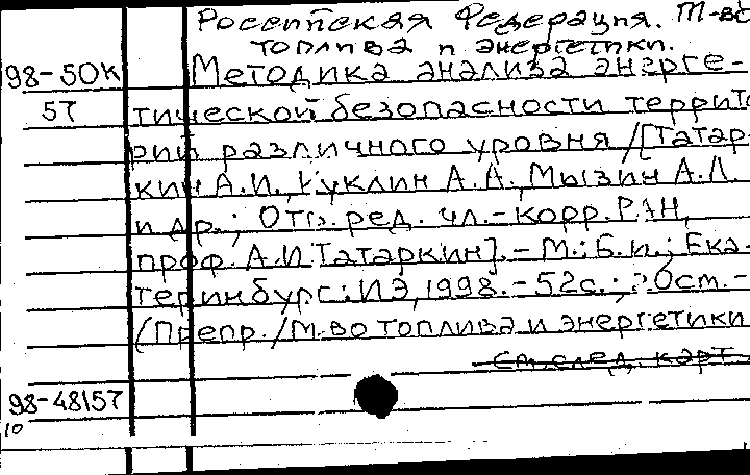 Российская Федерация. М-во
топлива и энергетики.
98-50К Методика анализа энерге-
57 тической безопасности террито
рий различного уровня / [Татар-
кин А.И., Куклин А.А., Мызин А.Л.
и др.; Отв. ред. чл.-корр. РАН,
проф. А.И. Татаркин]. - М.; Б.и.; Ека
теринбург: ИЭ, 1998. - 52с.; 20см. -
(Препр. / М-во топлива и энергетики
см. след. карт.
98-48157
10